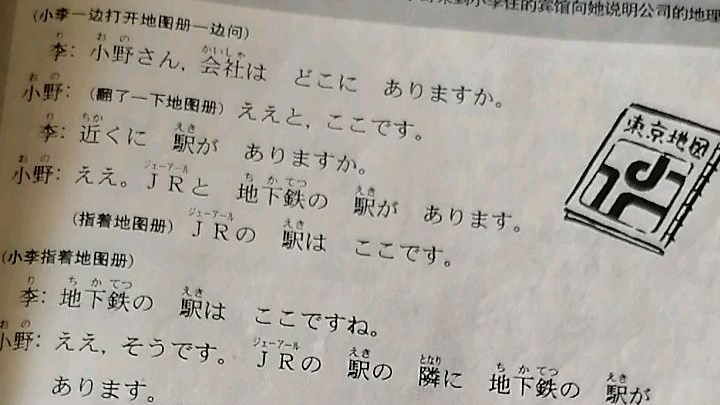 宾馆向她说明公司的地理
(小李一边打开地图册一边问)
李: 小野さん, 会社は どこに ありますか。
小野: (翻了一下地图册) ええと, ここです。
李: 近くに 駅が ありますか。
小野: ええ。JRと 地下鉄の 駅が あります。
(指着地图册) JRの 駅は ここです。
(小李指着地图册)
李: 地下鉄の 駅は ここですね。
小野: ええ, そうです。JRの 駅の 隣に 地下鉄の 駅が
あります。
東京地図